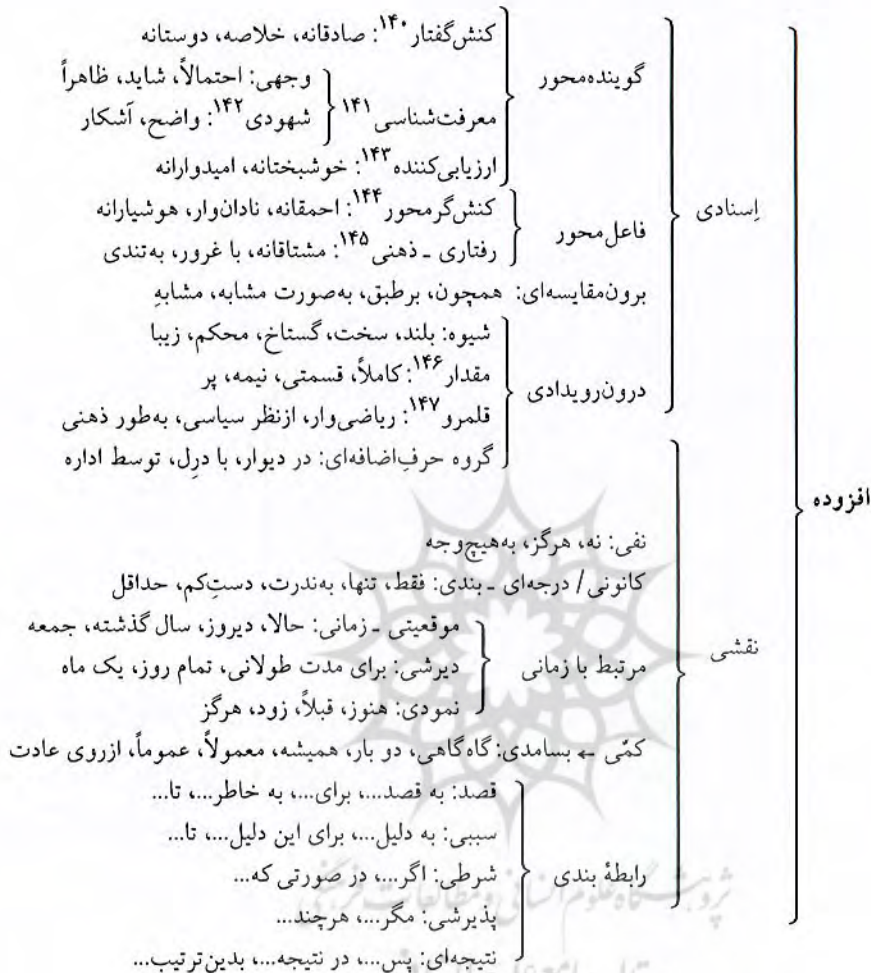 کنش‌گفتار۱۴۰: صادقانه، خلاصه، دوستانه
گوینده‌محور
وجهی: احتمالاً، شاید، ظاهراً
معرفت‌شناسی۱۴۱
شهودی۱۴۲: واضح، آشکار
ارزیابی‌کننده۱۴۳: خوشبختانه، امیدوارانه
إسنادی
کنش‌گرمحور۱۴۴: احمقانه، نادان‌وار، هوشیارانه
فاعل‌محور
رفتاری ـ ذهنی۱۴۵: مشتاقانه، با غرور، به‌تندی
برون‌مقایسه‌ای: همچون، برطبق، به‌صورت مشابه، مشابهِ
شیوه: بلند، سخت، گستاخ، محکم، زیبا
مقدار۱۴۶: کاملاً، قسمتی، نیمه، پر
درون‌رویدادی
قلمرو۱۴۷: ریاضی‌وار، ازنظر سیاسی، به‌طور ذهنی
گروه حرف‌اضافه‌ای: در دیوار، با دِرِل، توسط اداره
افزوده
نفی: نه، هرگز، به‌هیچ‌وجه
کانونی/ درجه‌ای ـ بندی: فقط، تنها، به‌ندرت، دستِ‌کم، حداقل
نقشی
موقعیتی ـ زمانی: حالا، دیروز، سال گذشته، جمعه
مرتبط با زمانی
دیرشی: برای مدت طولانی، تمام روز، یک ماه
نمودی: هنوز، قبلاً، زود، هرگز
کمّی ← بسامدی: گاه‌گاهی، دو بار، همیشه، معمولاً، عموماً، ازروی عادت
قصد: به قصد...، برای...، به خاطر...، تا...
سببی: به دلیل...، برای این دلیل...، تا...
رابطهٔ بندی
شرطی: اگر...، در صورتی که...
پذیرشی: مگر...، هرچند...
نتیجه‌ای: پس...، در نتیجه...، بدین‌ترتیب...
پژوهشگاه علوم انسانی و مطالعات فرهنگی